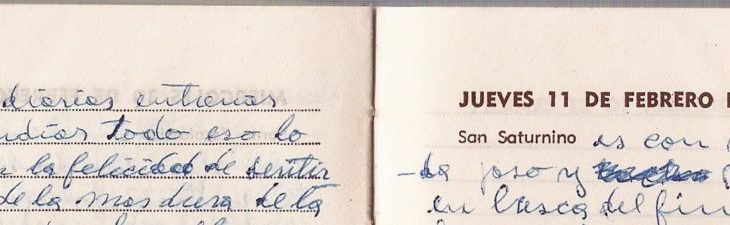 diarias entranas
ndias todo eso lo
la felicidad de sentir
de la mas dura de la
JUEVES 11 DE FEBRERO
San Saturnino es con
y
en busca del fin